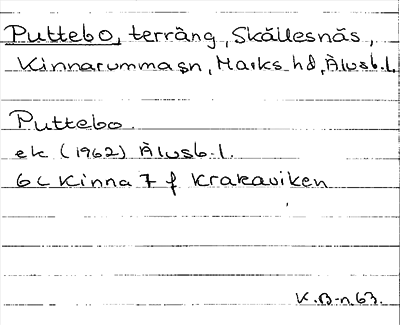 Puttebo, terräng, Skällesnäs,
Kinnarumma sn, Marks hd, Älvsb. l.
Puttebo.
ek (1962) Älvsb. l.
6 C Kinna 7 f Krakaviken
K. B-n 63.